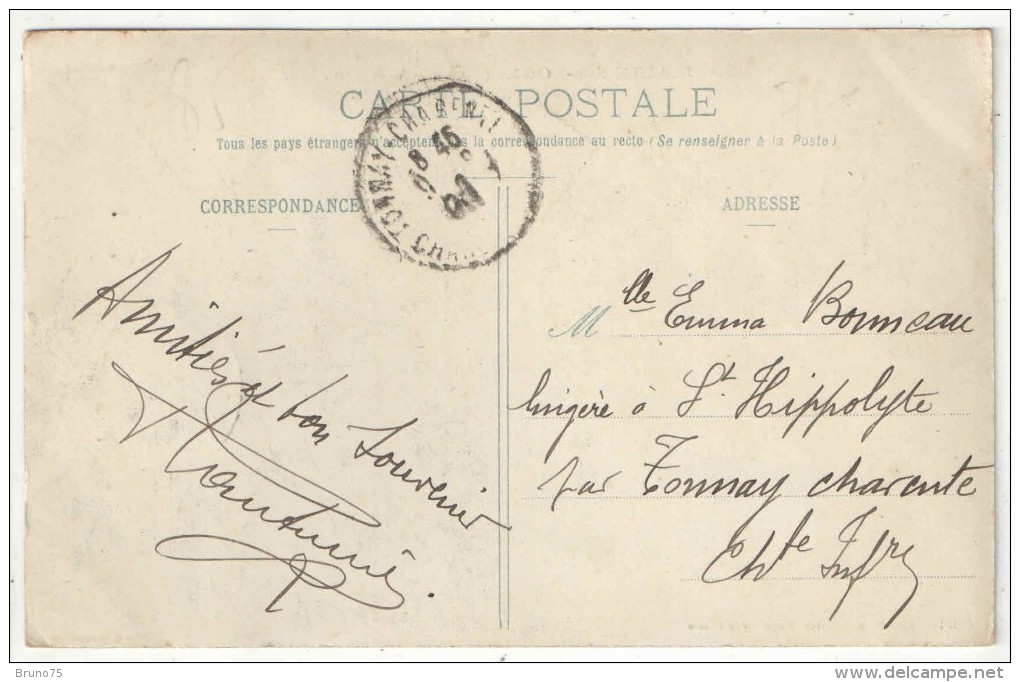 CARTE POSTALE
Tous les pays étrangers n'acceptent pas la correspondance au recto (Se renseigner à la Poste)
CORRESPONDANCE
ADRESSE
TONNAY-CHARENTE
8 45
Amitiés et bon souvenir
Mlle Emma Bonneau
lingère à St Hippolyte
par Tonnay charente
Chte Infre
Bruno75
http://www.delcampe.net